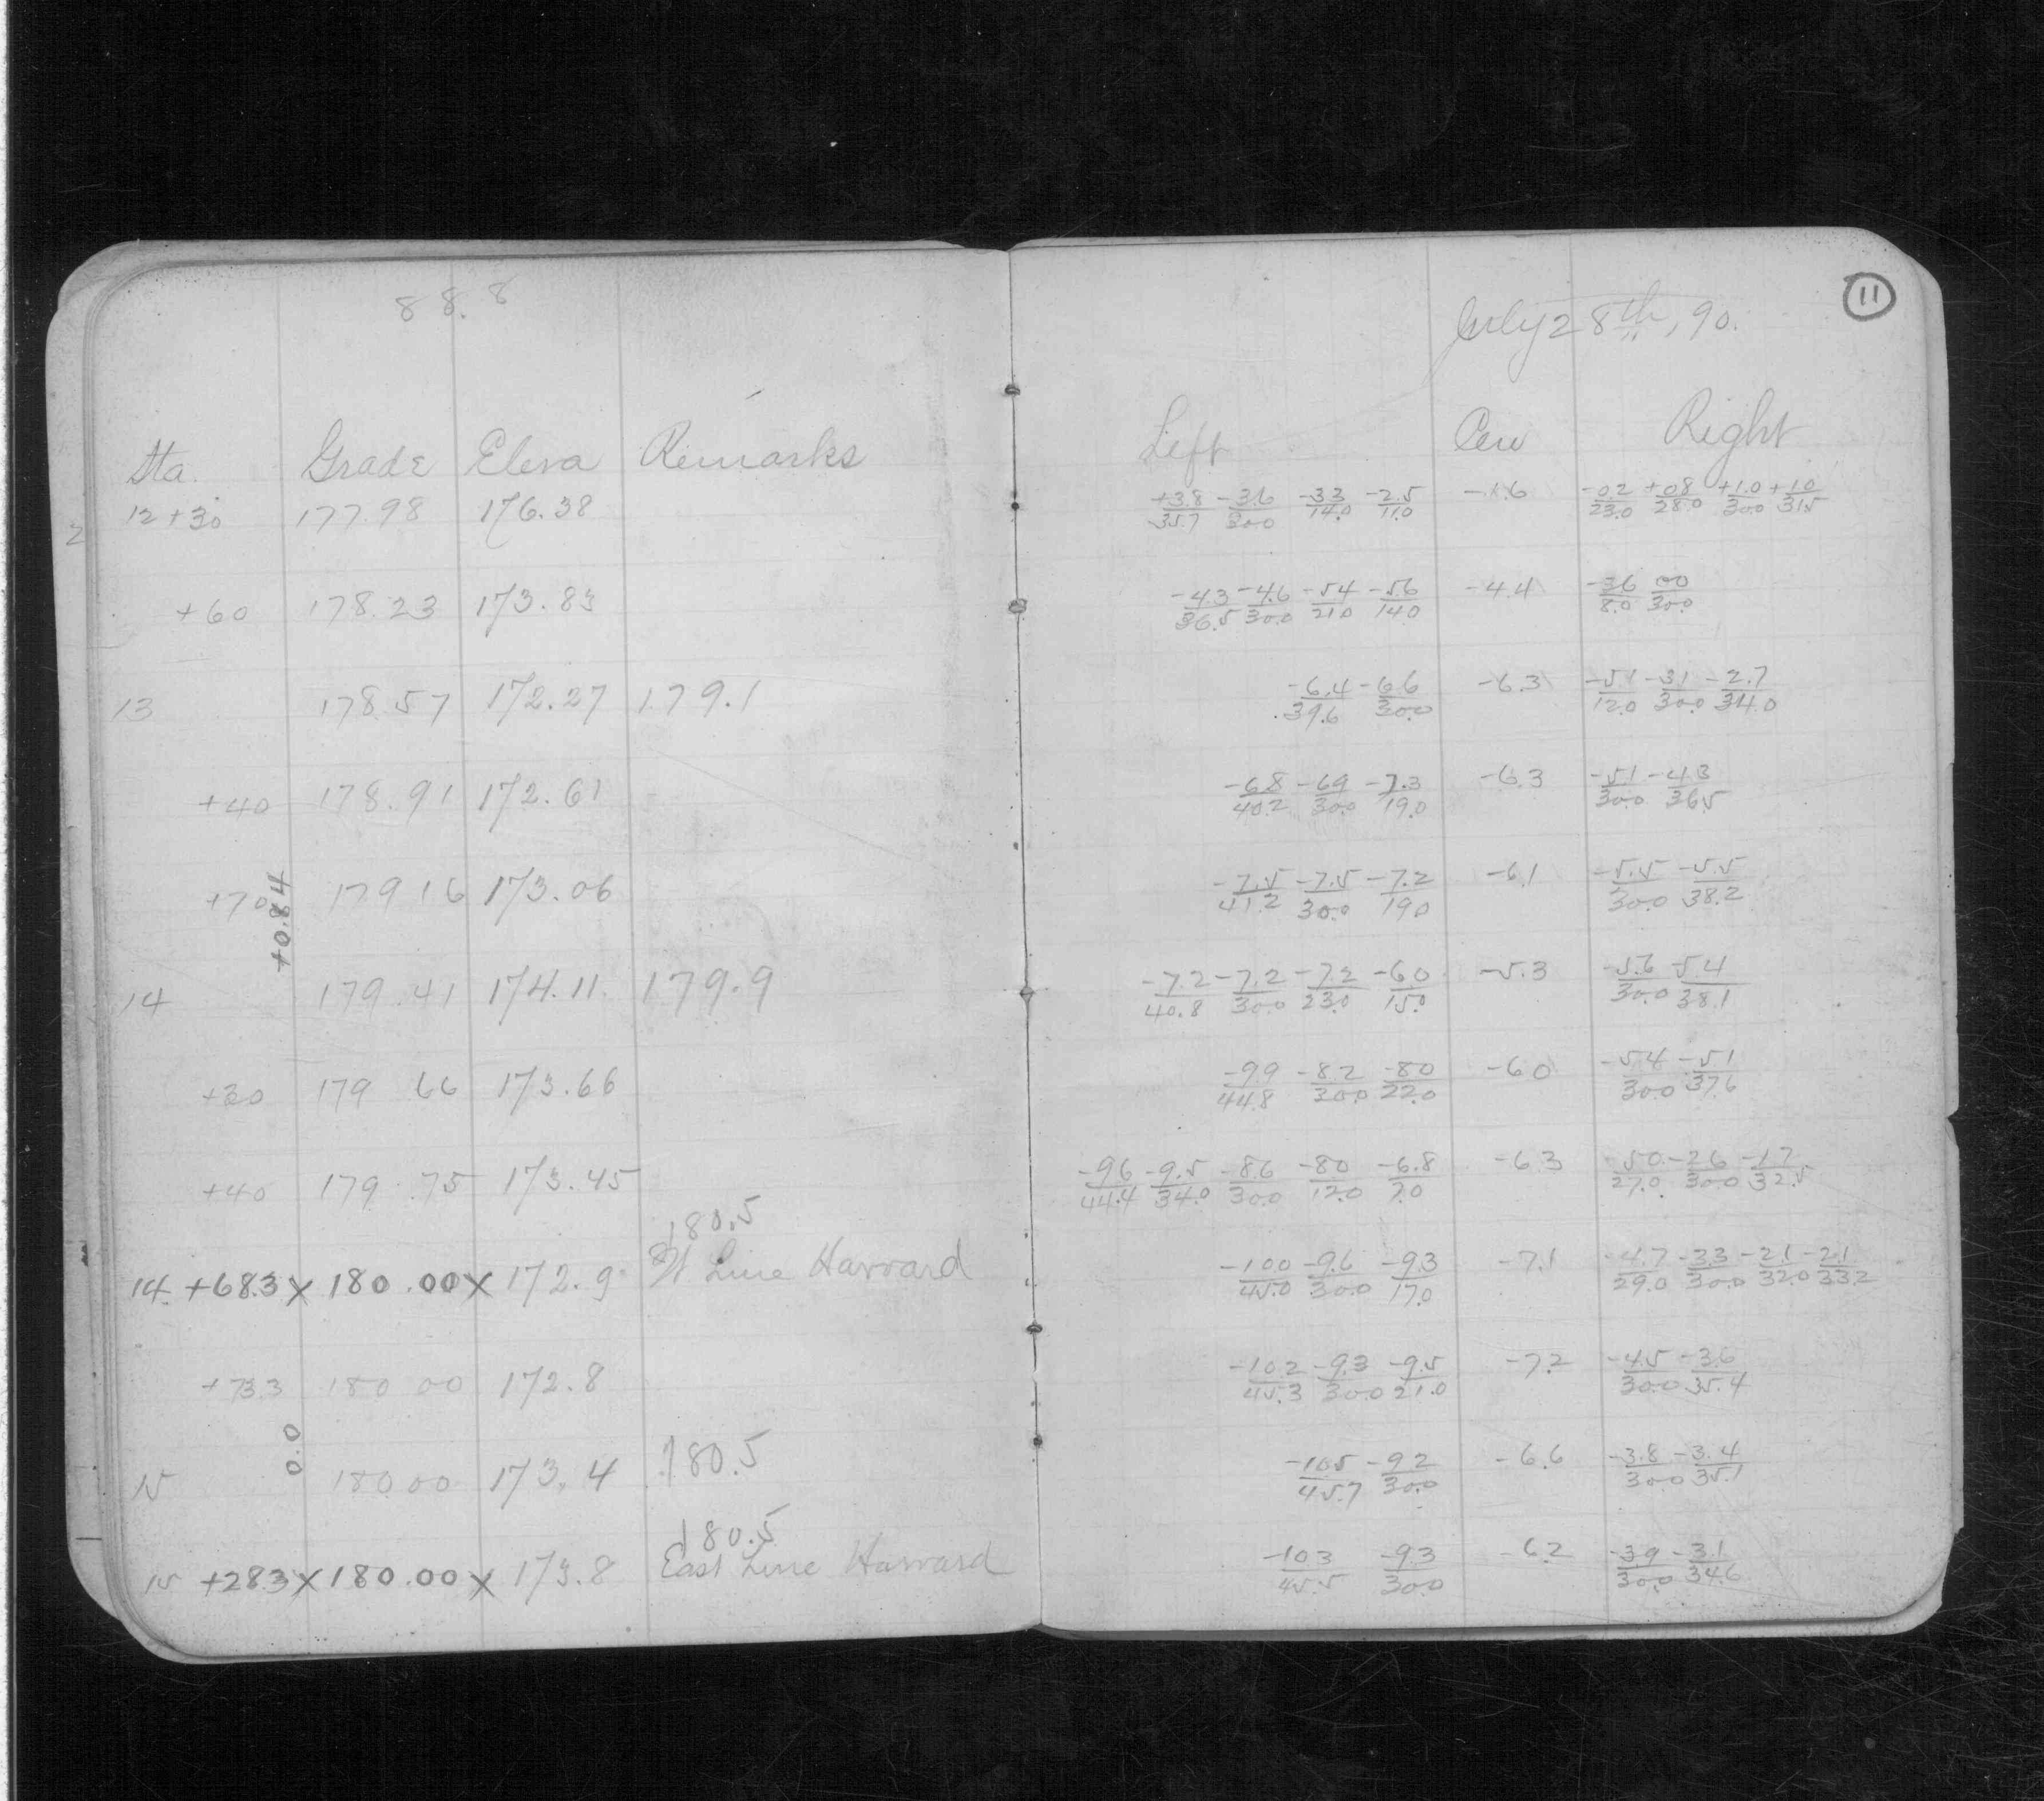 88.8
Sta. Grade Eleva Remarks
12+30 177.98 176.38
+60 178.23 173.83
13 178.57 172.27 179.1
+40 178.91 172.61
+70 179 16 173.06
+0.84
14 179.41 174.11. 179.9
+30 179 66 173.66
+40 179.75 173.45
180.5
14 +68.3 x 180.00 x 172.9 W Line Harvard
+73.3 180 00 172.8
0.0
15 180.00 173.4 180.5
180.5
15 +28.3 x 180.00 x 173.8 East Line Harvard
11
July 28th, 90.
Left Cen Right
+3.8/35.7 -3.6/30.0 -3.3/14.0 -2.5/11.0 -1.6 -0.2/23.0 +0.8/28.0 +1.0/30.0 +1.0/31.5
-4.3/36.5 -4.6/30.0 -5.4/21.0 -5.6/14.0 -4.4 -3.6/8.0 00/30.0
-6.4/39.6 -6.6/30.0 -6.3 -5.1/12.0 -3.1/30.0 -2.7/34.0
-6.8/40.2 -6.9/30.0 -7.3/19.0 -6.3 -5.1/30.0 -4.3/36.5
-7.5/41.2 -7.5/30.0 -7.2/19.0 -6.1 -5.5/30.0 -5.5/38.2
-7.2/40.8 -7.2/30.0 -7.2/23.0 -6.0/15.0 -5.3 -5.6/30.0 -5.4/38.1
-9.9/44.8 -8.2/30.0 -8.0/22.0 -6.0 -5.4/30.0 -5.1/37.6
-9.6/44.4 -9.5/34.0 -8.6/30.0 -8.0/12.0 -6.8/7.0 -6.3 -5.0/27.0 -2.6/30.0 -1.7/32.5
-10.0/45.0 -9.6/30.0 -9.3/17.0 -7.1 -4.7/29.0 -3.3/30.0 -2.1/32.0 -2.1/33.2
-10.2/45.3 -9.3/30.0 -9.5/21.0 -7.2 -4.5/30.0 -3.6/35.4
-10.5/45.7 -9.2/30.0 -6.6 -3.8/30.0 -3.4/35.1
-10.3/45.5 -9.3/30.0 -6.2 -3.9/30.0 -3.1/34.6